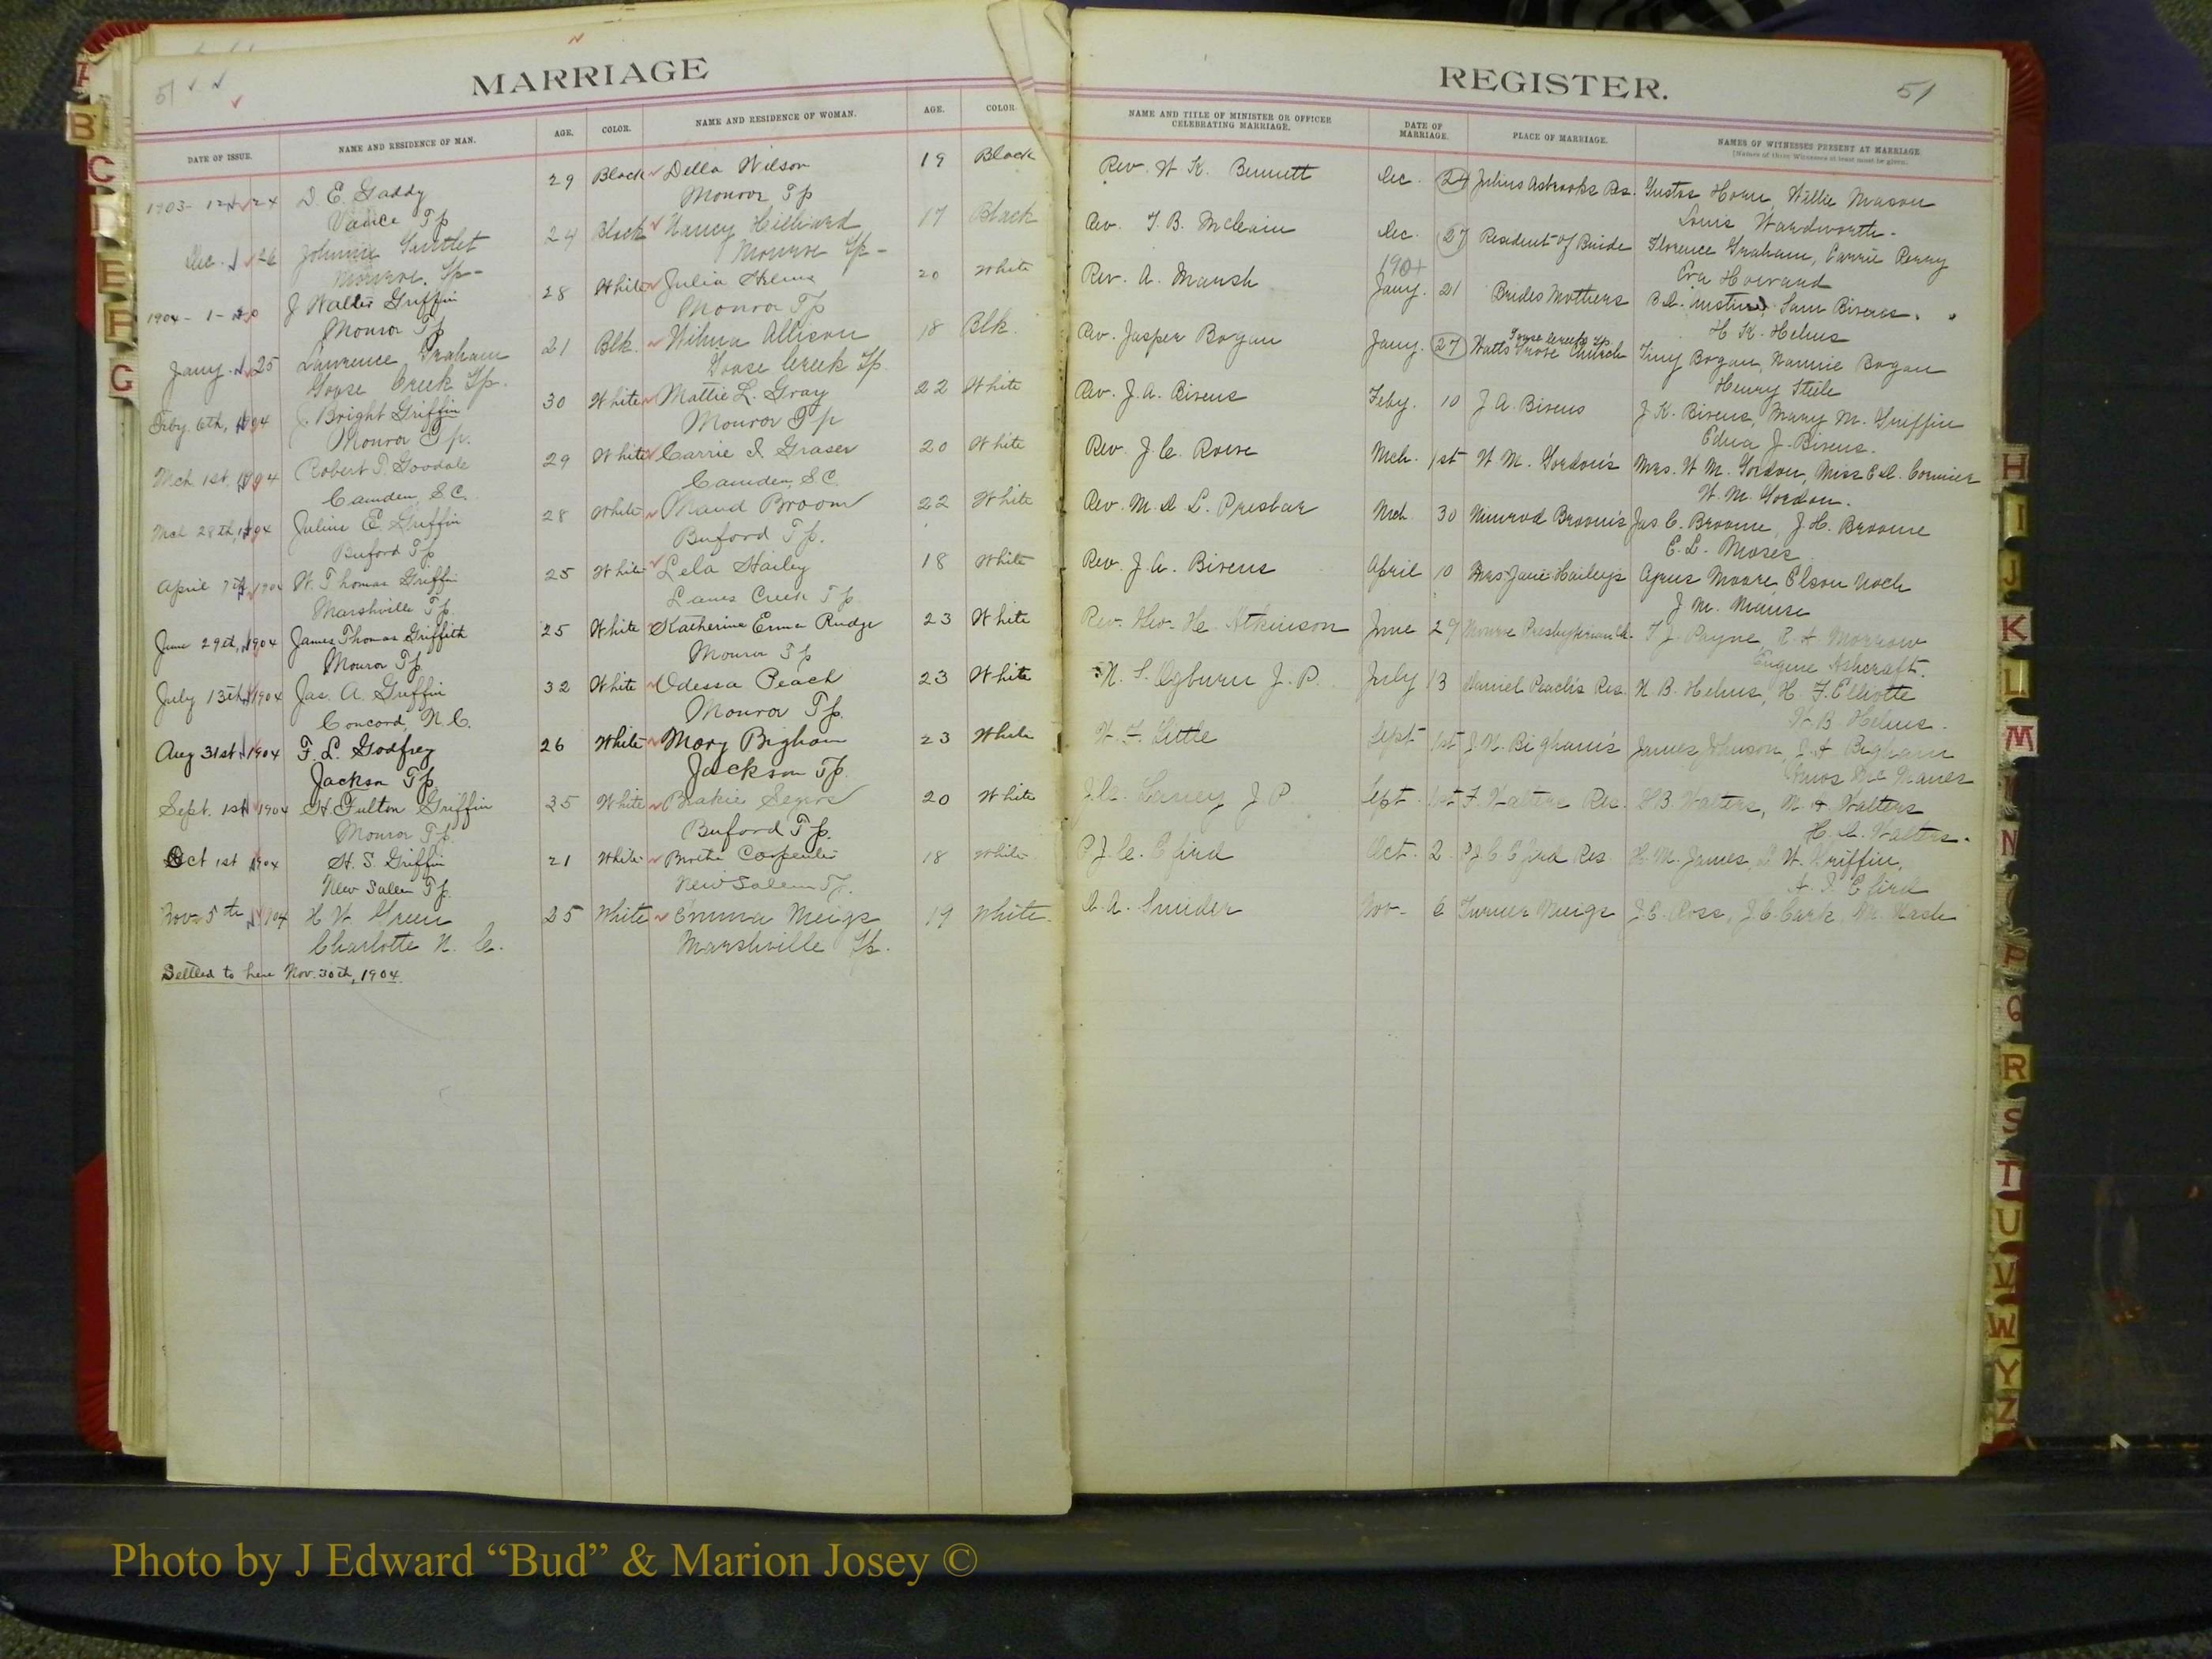 51
MARRIAGE
DATE OF ISSUE. NAME AND RESIDENCE OF MAN. AGE. COLOR. NAME AND RESIDENCE OF WOMAN. AGE. COLOR.
1903- 12 24 D. E. Gaddy 29 Black Della Wilson 19 Black
Vance Tp Monroe Tp
Dec. 26 Johnnie 24 Black Nancy Hilliard 17 Black
Monroe. Tp- Monroe Tp-
1904-1-20 J Walter Griffin 28 White Julia Helms 20 White
Monroe Tp Monroe Tp
Jany. 25 Lawrence Graham 21 Blk. Wilma Allison 18 Blk.
Goose Creek Tp. Goose Creek Tp.
Feby. 6th, 1904 J. Bright Griffin 30 White Mattie L. Gray 22 White
Monroe Tp. Monroe Tp
Mch. 1st, 1904 Robert T. Goodale 29 White Carrie I Graser 20 White
Camden, S.C. Camden, S.C.
Mch 28th, 1904 Julius E. Griffin 28 White Maud Broom 22 White
Buford Tp. Buford Tp.
April 7th, 1904 W. Thomas Griffin 25 White Lela Hailey 18 White
Marshville Tp. Lanes Creek Tp
June 29th, 1904 James Thomas Griffith 25 White Katherine Erma Rudge 23 White
Monroe Tp. Monroe Tp
July 13th 1904 Jas. A. Griffin 32 White Odessa Peach 23 White
Concord, N.C. Monroe Tp.
Aug 31st 1904 F. L. Godfrey 26 White Mary Bigham 23 White
Jackson Tp Jackson Tp.
Sept. 1st 1904 H. Fulton Griffin 25 White Segars 20 White
Monroe Tp. Buford Tp.
Oct 1st 1904 H. S. Griffin 21 White Carpenter 18 White
New Salem Tp. New Salem Tp.
Nov. 5th 1904 H W Green 25 White Emma Meigs 19 White.
Charlotte N. C. Marshville Tp.
Settled to here Nov. 30th, 1904.
REGISTER.
51
NAME AND TITLE OF MINISTER OR OFFICER CELEBRATING MARRIAGE. DATE OF MARRIAGE. PLACE OF MARRIAGE. NAMES OF WITNESSES PRESENT AT MARRIAGE
(Names of three Witnesses at least must be given)
Rev. W. K. Bennett Dec. 24 Julius Res. Horne, Willie Mason
Louis Wardworth.
Rev. T. B. McClain Dec. 27 Resident of Bride Florence Graham, Carrie Perry
Eva Howard
Rev. A. Marsh 1904 Jany. 21 Brides Mothers Sam Bivens.
H. K. Helms
Rev. Jasper Bogan Jany. 27 Watts Grove Church Goose Creek Tp. Tiny Bogan, Nannie Bogan
Henry Steele
Rev. J. A. Bivens Feby. 10 J. A. Bivens J. K. Bivens, Mary M. Griffin
Edna J. Bivens.
Rev. J. C. Rowe Mch. 1st W. M. Gordon's Mrs. W. M. Gordon, Miss
W. M. Gordon.
Rev. M. D. L. Preslar Mch 30 Nimrod Broom's Jas. C. Broome, J. H. Broome
E. L. Moses
Rev. J. A. Bivens April 10 Mrs. Jane Hailey's Moore,
J. M.
Rev. Geo. H. Atkinson June 29 Monroe Presbyterian Ch. T. J. Payne, R. A. Morrow
Eugene Ashcraft.
N. S. Ogburn J. P. July 13 Daniel Peach's Res. N. B. Helms, H. F. Elliotte
W. B. Helms.
W. F. Little Sept 1st J. N. Bigham's James Johnson, J. A. Bigham
Amos Mc Manes
J. C. Laney J P. Sept. 1st F. Walters Res. S B. Walters, W. A. Walters
H. A. Walters.
P. J. C. Efird Oct. 2 P. J. C. Efird Res. H. M. James, L. W. Griffin,
A. I. Efird
D. A. Snider Nov- 6 Turner Meigs J. E. Ross, J. C. Cark, Mr. Nash
A
B
C
D
E
F
G
H
I
J
K
L
M
N
P
Q
R
S
T
U
V
W
Y
Z
Photo by J Edward “Bud” & Marion Josey ©